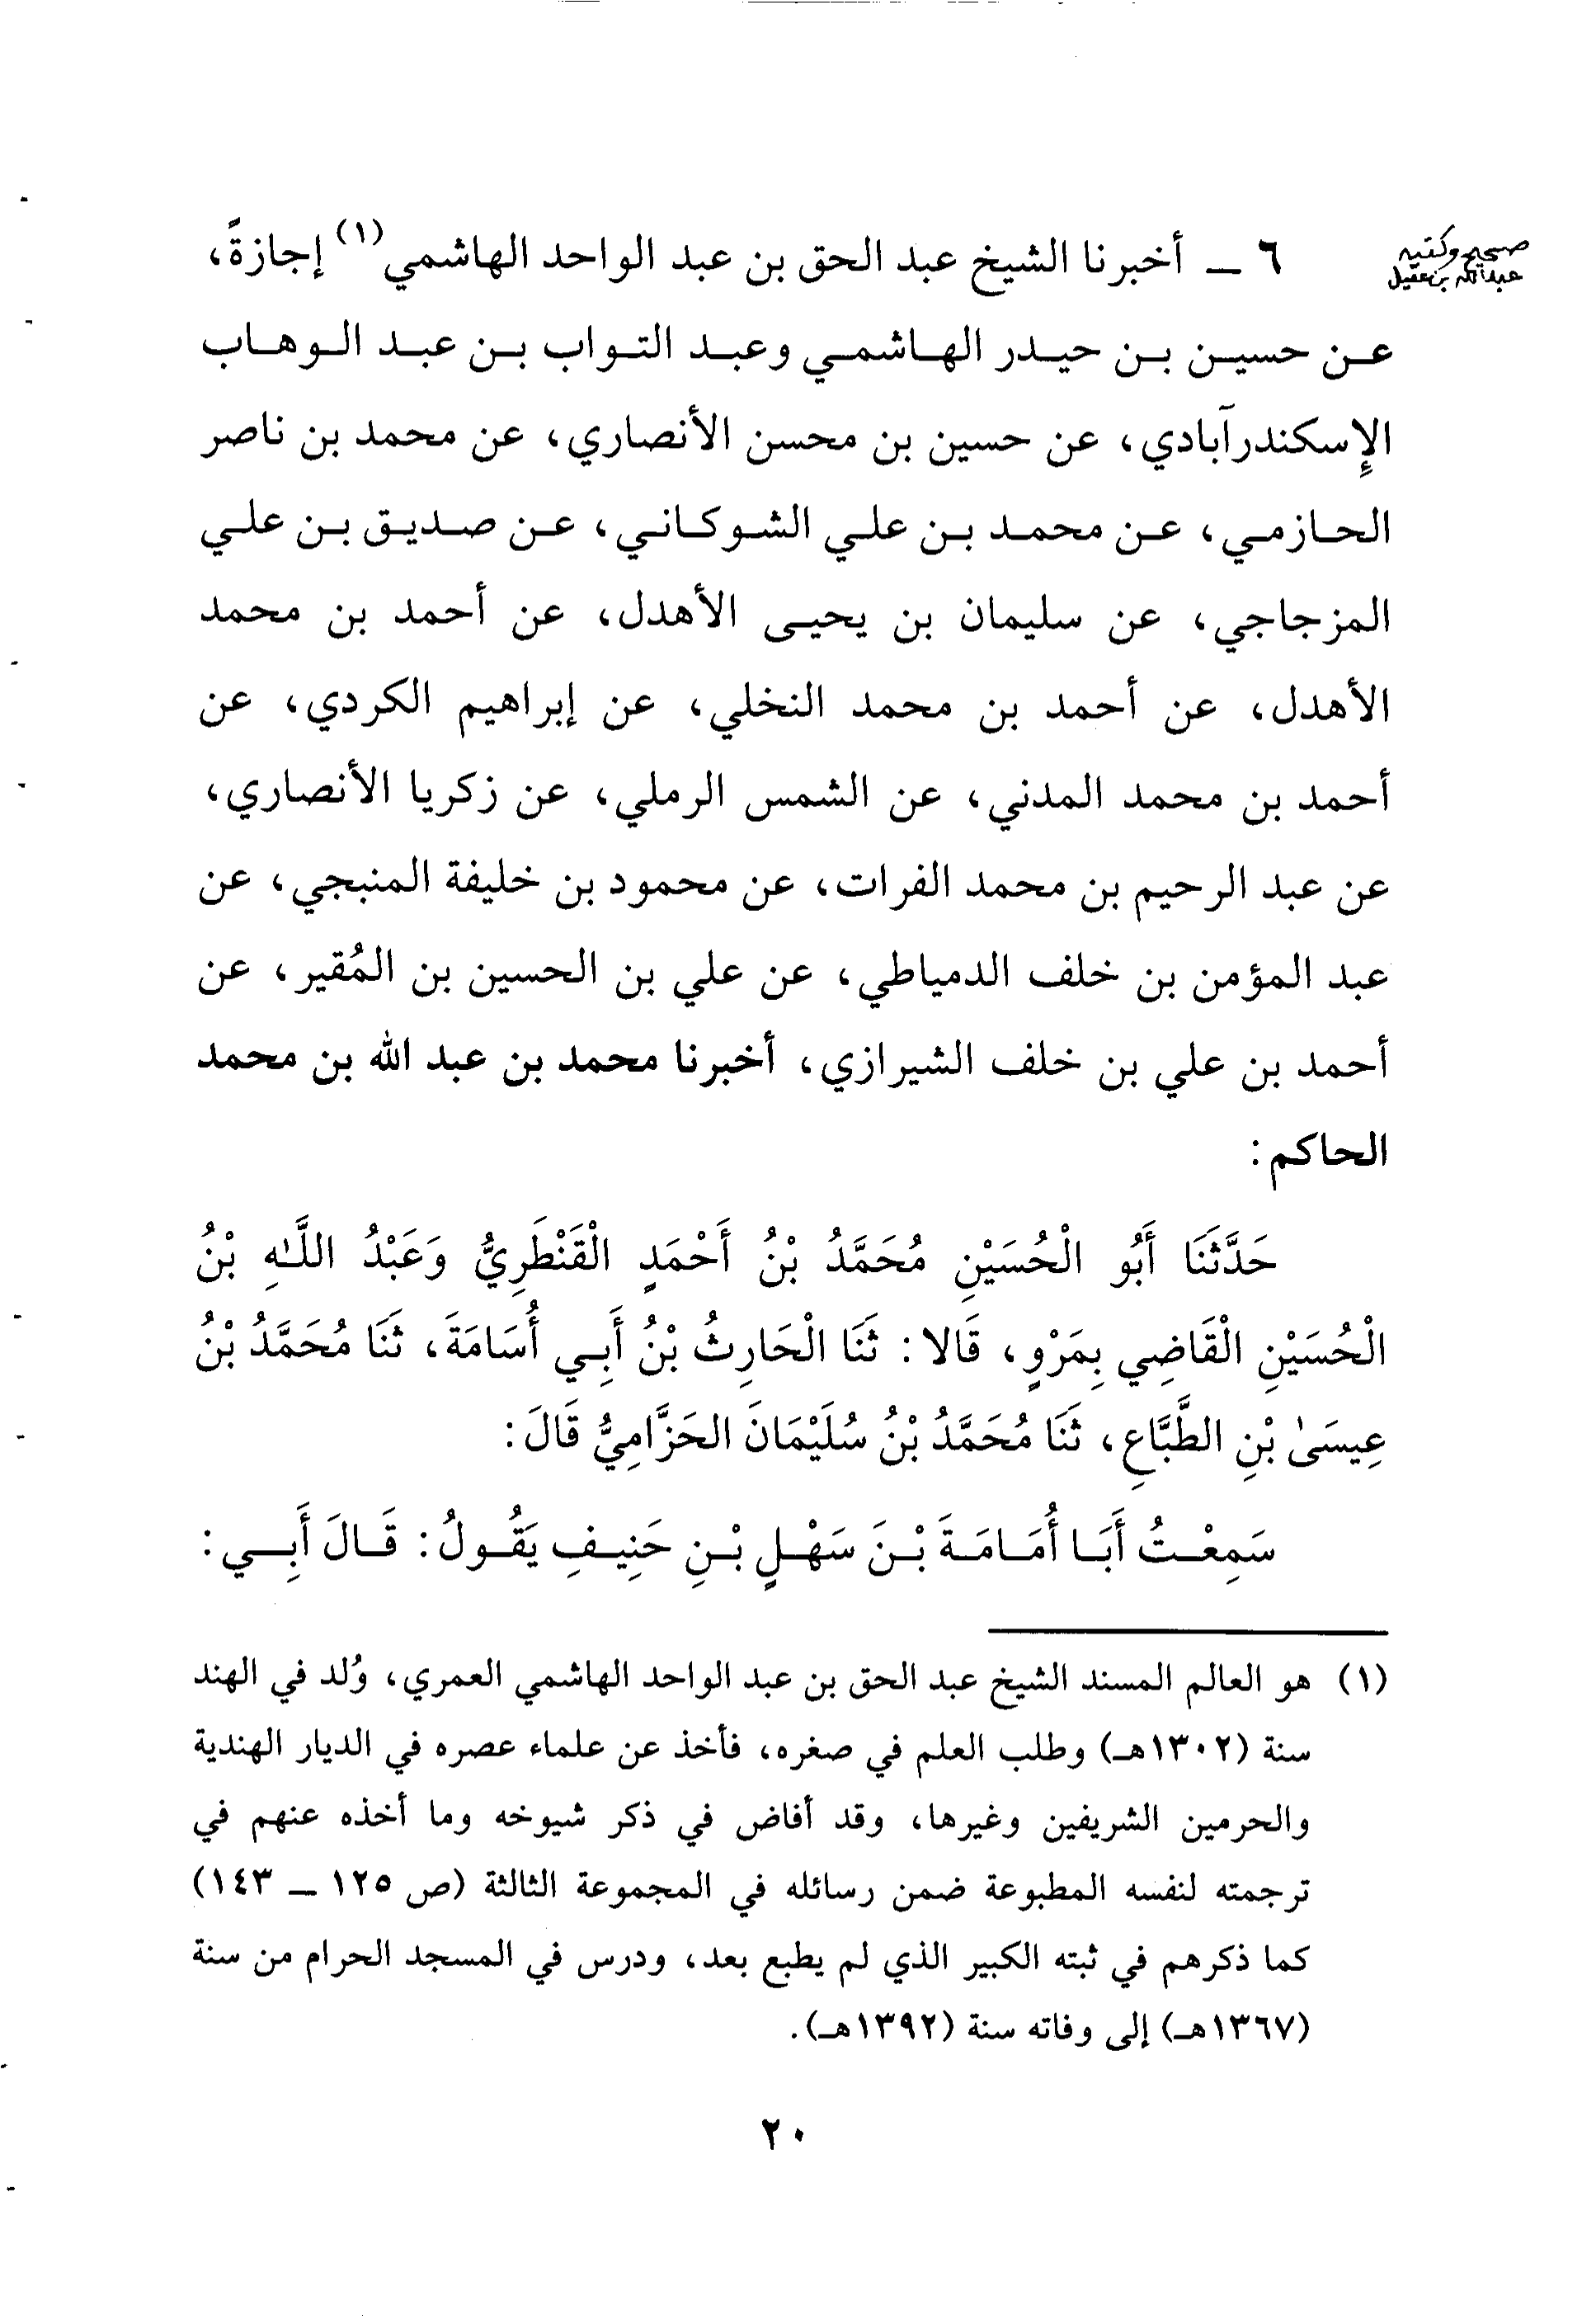 صحيح وكتبه
عبدالله بن عقيل
٦ ــ أخبرنا الشيخ عبد الحق بن عبد الواحد الهاشمي(١) إجازةً،
عن حسين بن حيدر الهاشمي وعبد التواب بن عبد الوهاب
الإسكندرآبادي، عن حسين بن محسن الأنصاري، عن محمد بن ناصر
الحازمي، عن محمد بن علي الشوكاني، عن صديق بن علي
المزجاجي، عن سليمان بن يحيى الأهدل، عن أحمد بن محمد
الأهدل، عن أحمد بن محمد النخلي، عن إبراهيم الكردي، عن
أحمد بن محمد المدني، عن الشمس الرملي، عن زكريا الأنصاري،
عن عبد الرحيم بن محمد الفرات، عن محمود بن خليفة المنبجي، عن
عبد المؤمن بن خلف الدمياطي، عن علي بن الحسين بن المُقير، عن
أحمد بن علي بن خلف الشيرازي، أخبرنا محمد بن عبد الله بن محمد
الحاكم:
حَدَّثَنَا أَبُو الْحُسَيْنِ مُحَمَّدُ بْنُ أَحْمَدٍ الْقَنْطَرِيُّ وَعَبْدُ اللَّـهِ بْنُ
الْحُسَيْنِ الْقَاضِي بِمَرْوٍ، قَالا: ثَنَا الْحَارِثُ بْنُ أَبِي أُسَامَةَ، ثَنَا مُحَمَّدُ بْنُ
عِيسَىٰ بْنِ الطَّبَّاعِ، ثَنَا مُحَمَّدُ بْنُ سُلَيْمَانَ الحَزَّامِيُّ قَالَ:
سَمِعْتُ أَبَا أُمَامَةَ بْنَ سَهْلٍ بْنِ حَنِيفِ يَقُولُ: قَالَ أَبِي:
(١) هو العالم المسند الشيخ عبد الحق بن عبد الواحد الهاشمي العمري، وُلد في الهند
سنة (١٣٠٢هـ) وطلب العلم في صغره، فأخذ عن علماء عصره في الديار الهندية
والحرمين الشريفين وغيرها، وقد أفاض في ذكر شيوخه وما أخذه عنهم في
ترجمته لنفسه المطبوعة ضمن رسائله في المجموعة الثالثة (ص ١٢٥ ــ ١٤٣)
كما ذكرهم في ثبته الكبير الذي لم يطبع بعد، ودرس في المسجد الحرام من سنة
(١٣٦٧هـ) إلى وفاته سنة (١٣٩٢هـ).
٢٠